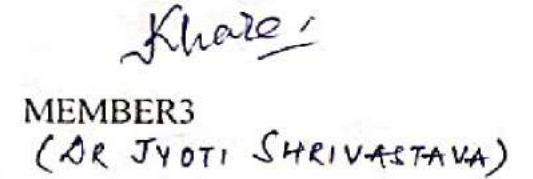 Khare
MEMBER3
(DR JYOTI SHRIVASTAVA)